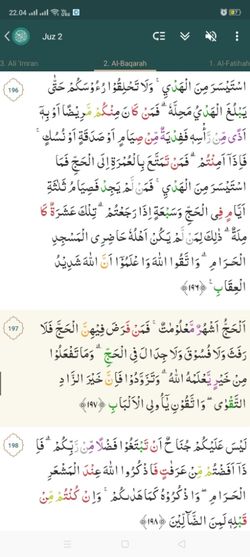 22.04
Juz 2
3. Ali 'Imran
2. Al-Baqarah
1. Al-Fatihah
196
اسْتَيْسَرَ مِنَ الْهَدْيِ ۚ وَلَا تَحْلِقُوْا رُءُوْسَكُمْ حَتّٰى
يَبْلُغَ الْهَدْيُ مَحِلَّهٗ ۗ فَمَنْ كَانَ مِنْكُمْ مَّرِيْضًا اَوْ بِهٖٓ
اَذًى مِّنْ رَّأْسِهٖ فَفِدْيَةٌ مِّنْ صِيَامٍ اَوْ صَدَقَةٍ اَوْ نُسُكٍ ۚ
فَاِذَآ اَمِنْتُمْ ۗ فَمَنْ تَمَتَّعَ بِالْعُمْرَةِ اِلَى الْحَجِّ فَمَا
اسْتَيْسَرَ مِنَ الْهَدْيِ ۚ فَمَنْ لَّمْ يَجِدْ فَصِيَامُ ثَلٰثَةِ
اَيَّامٍ فِى الْحَجِّ وَسَبْعَةٍ اِذَا رَجَعْتُمْ ۗ تِلْكَ عَشَرَةٌ كَا
مِلَةٌ ۗ ذٰلِكَ لِمَنْ لَّمْ يَكُنْ اَهْلُهٗ حَاضِرِى الْمَسْجِدِ
الْحَرَامِ ۗ وَاتَّقُوا اللّٰهَ وَاعْلَمُوْٓا اَنَّ اللّٰهَ شَدِيْدُ
الْعِقَابِ ﴿١٩٦﴾
197
اَلْحَجُّ اَشْهُرٌ مَّعْلُوْمٰتٌ ۚ فَمَنْ فَرَضَ فِيْهِنَّ الْحَجَّ فَلَا
رَفَثَ وَلَا فُسُوْقَ وَلَا جِدَالَ فِى الْحَجِّ ۗ وَمَا تَفْعَلُوْا
مِنْ خَيْرٍ يَّعْلَمْهُ اللّٰهُ ۗ وَتَزَوَّدُوْا فَاِنَّ خَيْرَ الزَّادِ
التَّقْوٰى ۖ وَاتَّقُوْنِ يٰٓاُولِى الْاَلْبَابِ ﴿١٩٧﴾
198
لَيْسَ عَلَيْكُمْ جُنَاحٌ اَنْ تَبْتَغُوْا فَضْلًا مِّنْ رَّبِّكُمْ ۗ فَاِ
ذَآ اَفَضْتُمْ مِّنْ عَرَفٰتٍ فَاذْكُرُوا اللّٰهَ عِنْدَ الْمَشْعَرِ
الْحَرَامِ ۖ وَاذْكُرُوْهُ كَمَا هَدٰىكُمْ ۚ وَاِنْ كُنْتُمْ مِّنْ
قَبْلِهٖ لَمِنَ الضَّآلِّيْنَ ﴿١٩٨﴾